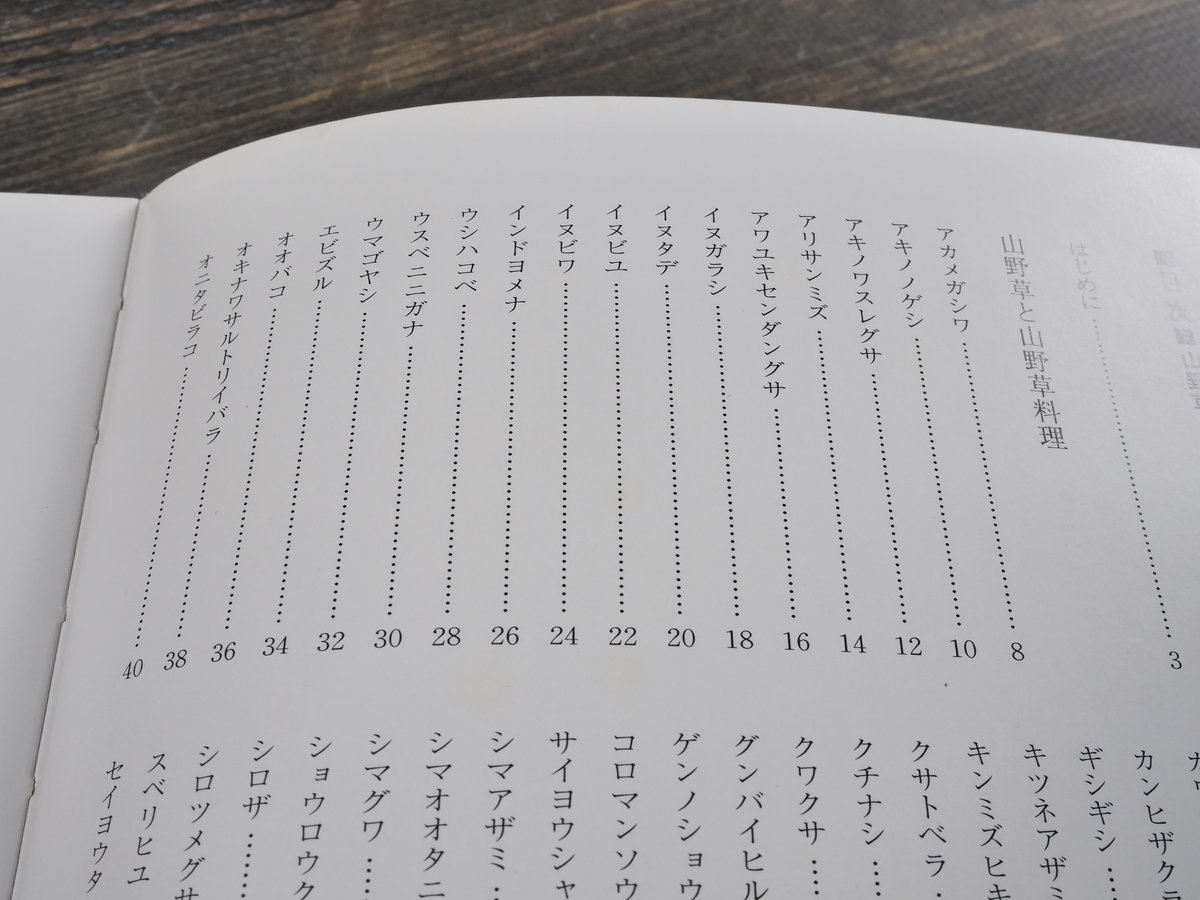 目次 山野草
はじめに……3
山野草と山野草料理
アカメガシワ……8
アキノノゲシ……10
アキノワスレグサ……12
アリサンミズ……14
アワユキセンダングサ……16
イヌガラシ……18
イヌタデ……20
イヌビユ……22
イヌビワ……24
インドヨメナ……26
ウシハコベ……28
ウスベニニガナ……30
ウマゴヤシ……32
エビズル……34
オオバコ……36
オキナワサルトリイバラ……38
オニタビラコ……40
カンヒザクラ
ギシギシ…
キツネアザミ
キンミズヒキ
クサトベラ…
クチナシ…
クワクサ…
グンバイヒル
ゲンノショウ
コロマンソウ
サイヨウシャ
シマアザミ…
シマオオタニ
シマグワ…
ショウロウク
シロザ……
シロツメグサ
スベリヒユ
セイヨウタ